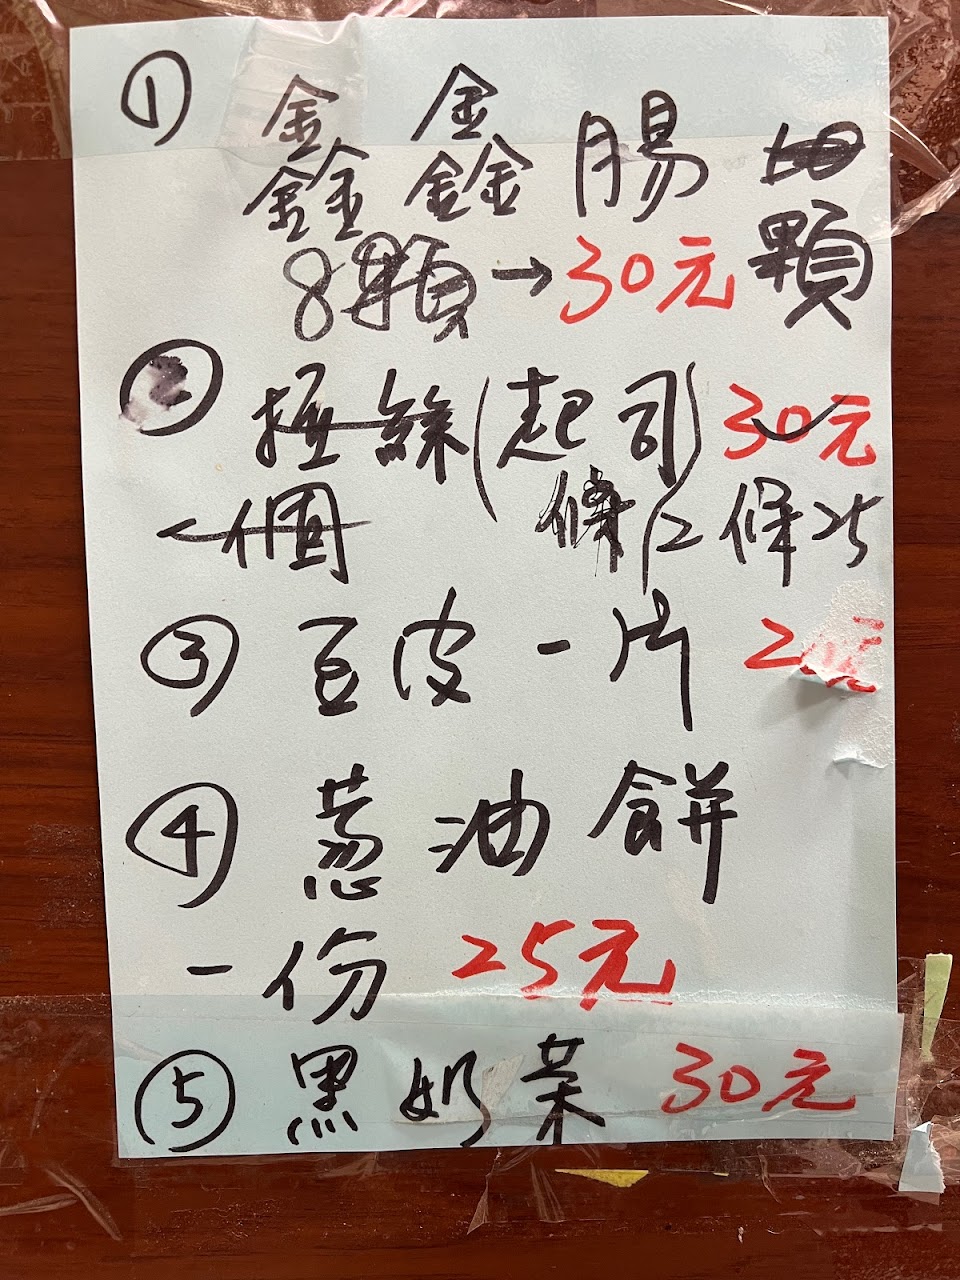 ① 鑫鑫腸
8顆→30元 顆
② 絲(起司) 30元
一個 條/2條25
③ 豆皮一片 2
④ 蔥油餅
一份 25元
⑤ 黑奶茶 30元